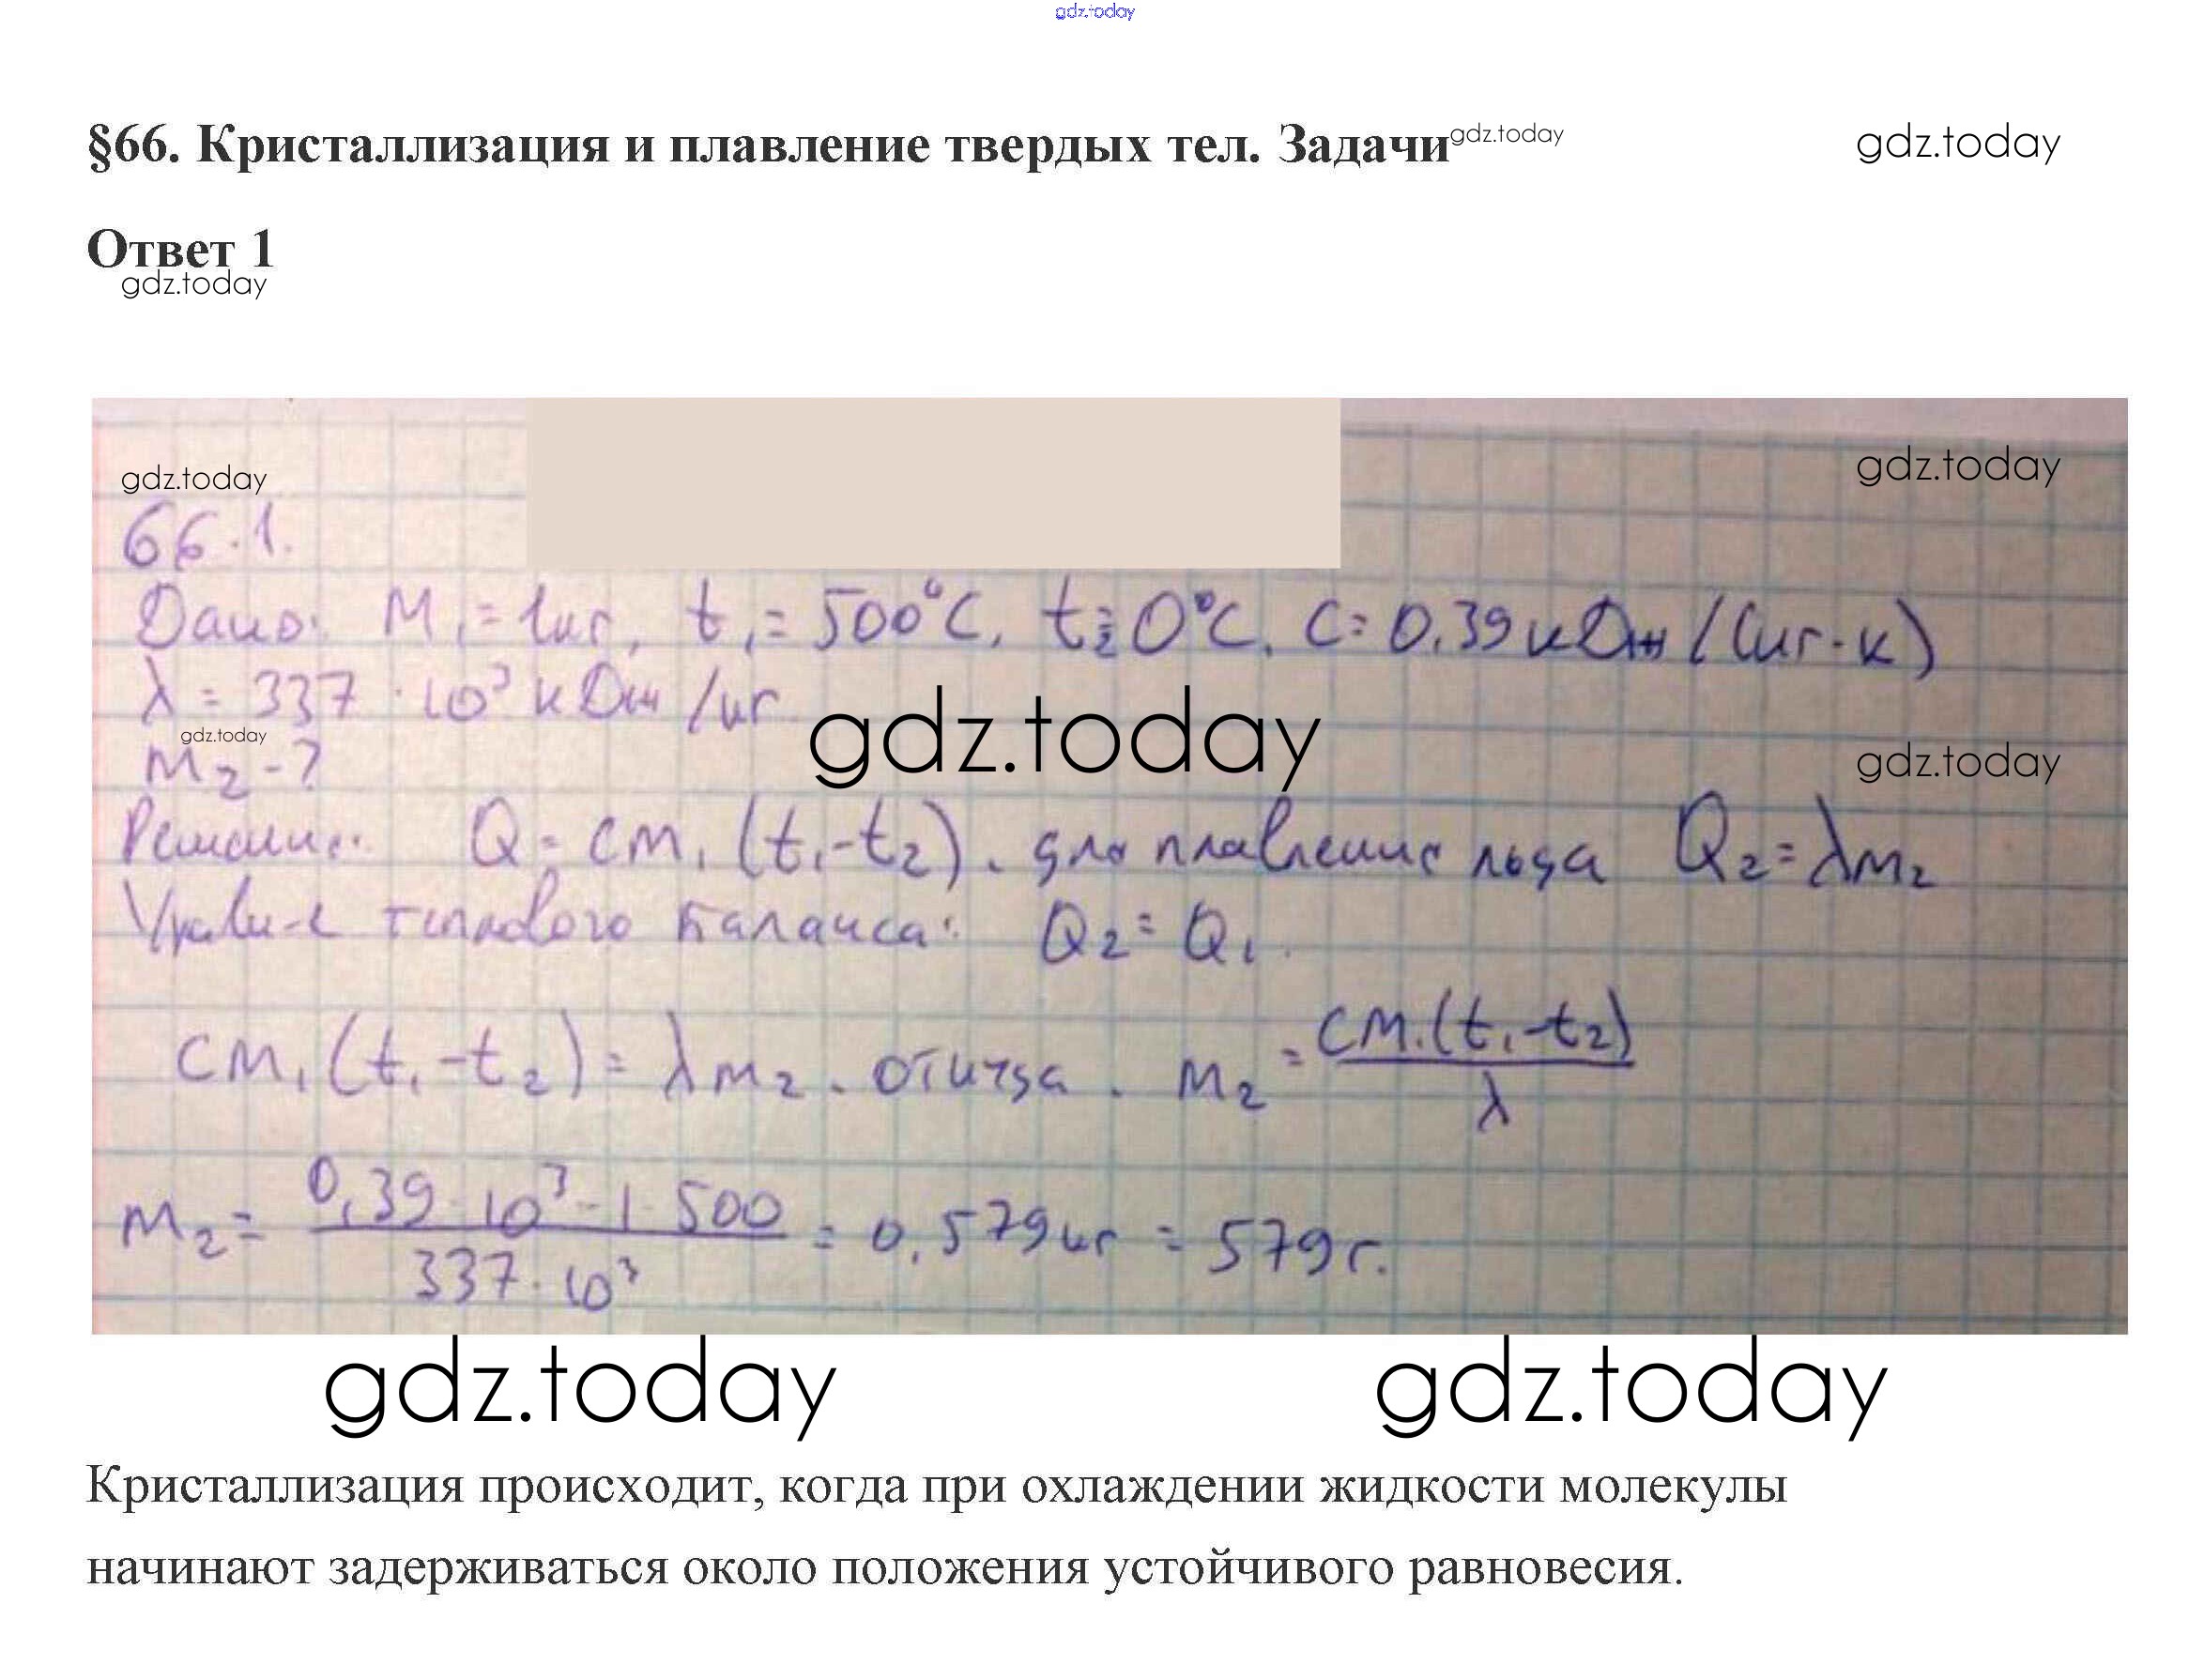 gdz.today
§66. Кристаллизация и плавление твердых тел. Задачи gdz.today gdz.today
Ответ 1
gdz.today
gdz.today gdz.today
66.1.
Дано: m₁ = 1кг, t₁ = 500°C, t₂ = 0°C, C = 0,39 кДж/(кг·к)
λ = 337 · 10³ кДж/кг
gdz.today
gdz.today
m₂ - ?
gdz.today
Решение: Q = cm₁(t₁-t₂). для плавления льда Q₂ = λm₂
Уравн-е теплового баланса: Q₂ = Q₁.
cm₁(t₁-t₂) = λm₂. откуда. m₂ = cm₁(t₁-t₂) / λ
m₂ = 0,39·10³·1·500 / 337·10³ = 0,579кг = 579г.
gdz.today gdz.today
Кристаллизация происходит, когда при охлаждении жидкости молекулы
начинают задерживаться около положения устойчивого равновесия.